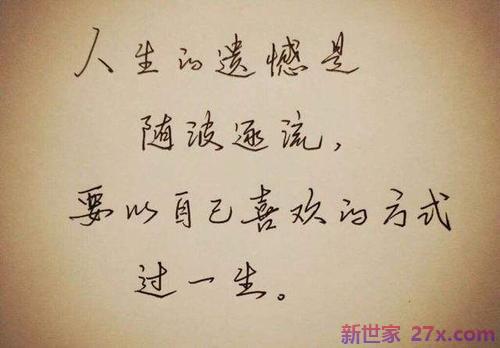 人生的遗憾是
随波逐流，
要以自己喜欢的方式
过一生。
新世家 27x.com